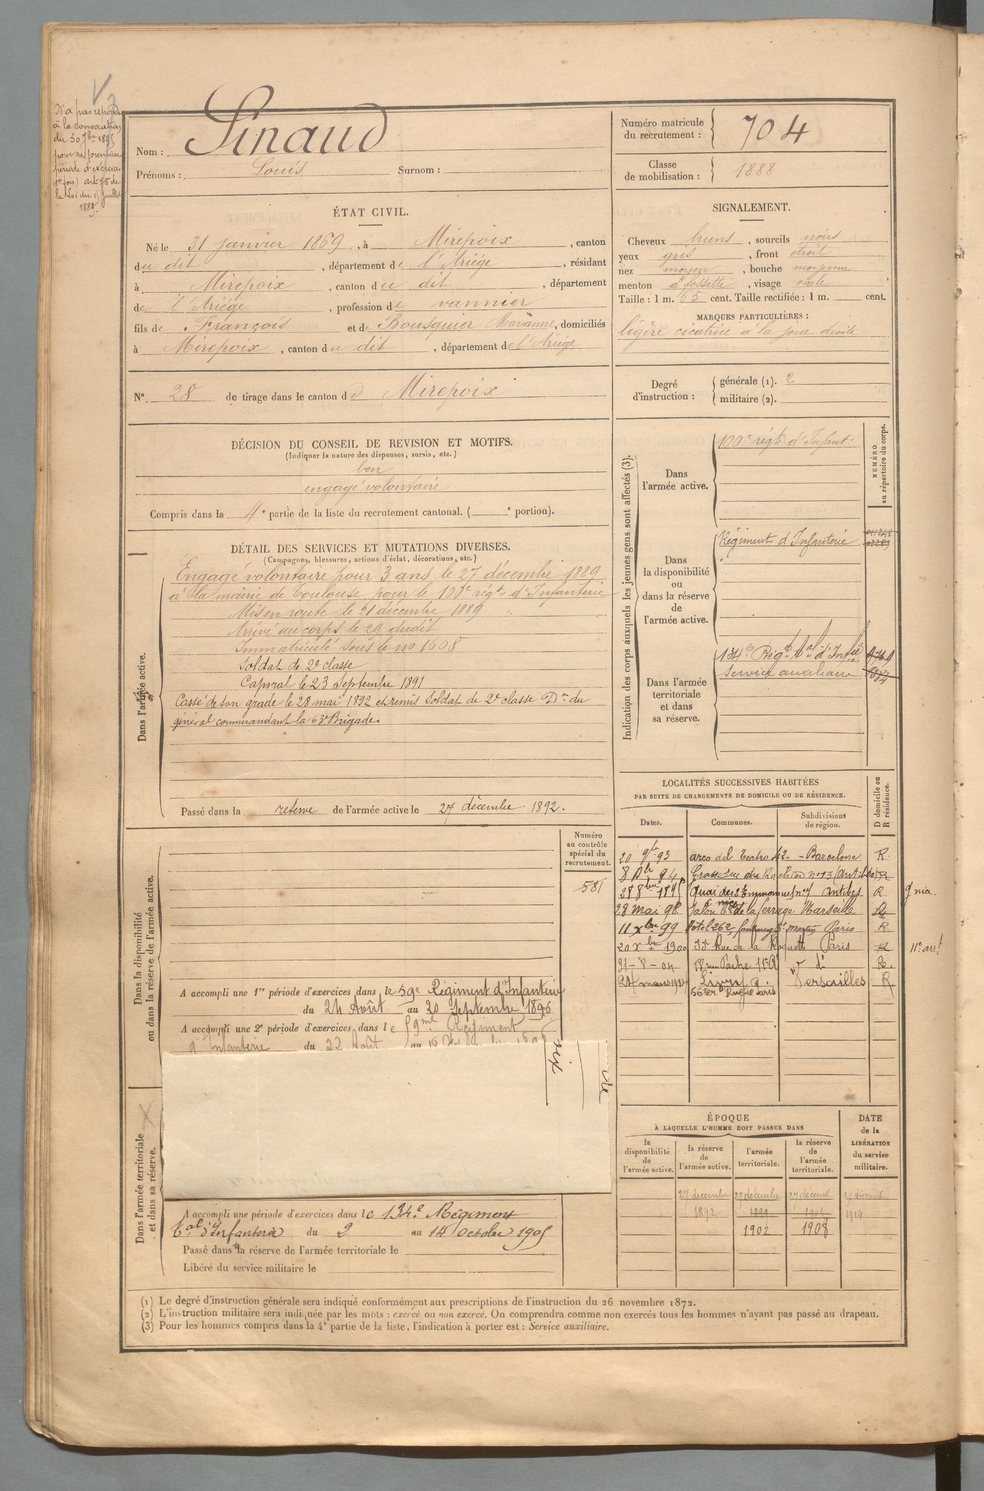 N'a pas répondu
à la convocation
du 30 7bre 1895
pour sa première
période d'exercice
(1re fois) art 75 de
la Loi du 15 juillet
1889.
Nom : Sinaud
Prénoms : Louis Surnom :
Numéro matricule du recrutement : 704
Classe de mobilisation : 1888
ÉTAT CIVIL.
Né le 31 janvier 1869, à Mirepoix, canton
du dit, département de l'Ariège, résidant
à Mirepoix, canton du dit, département
de l'Ariège, profession de vannier
fils de François et de Bousquier Marianne, domiciliés
à Mirepoix, canton du dit, département de l'Ariège
N° 28 de tirage dans le canton d Mirepoix
SIGNALEMENT.
Cheveux bruns, sourcils noirs
yeux gris, front droit
nez moyen, bouche moyenne
menton à fossette, visage ovale
Taille : 1 m. 65 cent. Taille rectifiée : 1 m. cent.
MARQUES PARTICULIÈRES :
légère cicatrice à la joue droite
Degré d'instruction : générale (1). 2
militaire (2).
DÉCISION DU CONSEIL DE REVISION ET MOTIFS.
(Indiquer la nature des dispenses, sursis, etc.)
bon
engagé volontaire
Compris dans la 4e partie de la liste du recrutement cantonal. ( e portion).
DÉTAIL DES SERVICES ET MUTATIONS DIVERSES.
(Campagnes, blessures, actions d'éclat, décorations, etc.)
Dans l'armée active.
Engagé volontaire pour 3 ans le 27 décembre 1889
à la mairie de Toulouse pour le 100e régt d'Infanterie
Mis en route le 21 décembre 1889
Arrivé au corps le 29 dudit
Immatriculé sous le no 1608
Soldat de 2e classe
Caporal le 23 septembre 1891
Cassé de son grade le 28 mai 1892 et remis Soldat de 2e classe Don du
général commandant la 63e Brigade.
Passé dans la réserve de l'armée active le 27 décembre 1892.
Indication des corps auxquels les jeunes gens sont affectés (3).
NUMÉRO au répertoire du corps.
Dans l'armée active.
100e régt d'Infant.
Dans la disponibilité ou dans la réserve de l'armée active.
Régiment d'Infanterie
Dans l'armée territoriale et dans sa réserve.
134e Régt tal d'Infie
Service auxiliaire
Numéro au contrôle spécial du recrutement.
581
Dans la disponibilité ou dans la réserve de l'armée active.
A accompli une 1re période d'exercices dans le 59e Régiment d'Infanterie
du 24 Août au 20 Septembre 1896
A accompli une 2e période d'exercices dans le 59me Régiment
d'Infanterie du 22 Août au
Dans l'armée territoriale et dans sa réserve.
A accompli une période d'exercices dans le 134e Régiment
tal d'Infanterie du 2 au 14 octobre 1905
Passé dans la réserve de l'armée territoriale le
Libéré du service militaire le
LOCALITÉS SUCCESSIVES HABITÉES
PAR SUITE DE CHANGEMENTS DE DOMICILE OU DE RÉSIDENCE.
Dates. Communes. Subdivisions de région. D domicile ou R résidence.
20 9bre 93 arco del Teatro 42 - Barcelone R
8 Antibes R
1895 Quai des Antibes R
28 mai 98 Marseille R
11 xbre 99 hôtel 262 faubourg St martin Paris R
20 xbre 1900 Rue de la Roquette Paris R 11e arrt
31-8-04 18 rue Pache 11e R
24 mars 1914 Livry Versailles R
ÉPOQUE
À LAQUELLE L'HOMME DOIT PASSER DANS
la disponibilité de l'armée active. la réserve de l'armée active. l'armée territoriale. la réserve de l'armée territoriale. DATE de la LIBÉRATION du service militaire.
27 décembre 27 décembre 27 décemb.
1892 1899
1902 1908
(1) Le degré d'instruction générale sera indiqué conformément aux prescriptions de l'instruction du 26 novembre 1872.
(2) L'instruction militaire sera indiquée par les mots : exercé ou non exercé. On comprendra comme non exercés tous les hommes n'ayant pas passé au drapeau.
(3) Pour les hommes compris dans la 4e partie de la liste, l'indication à porter est : Service auxiliaire.